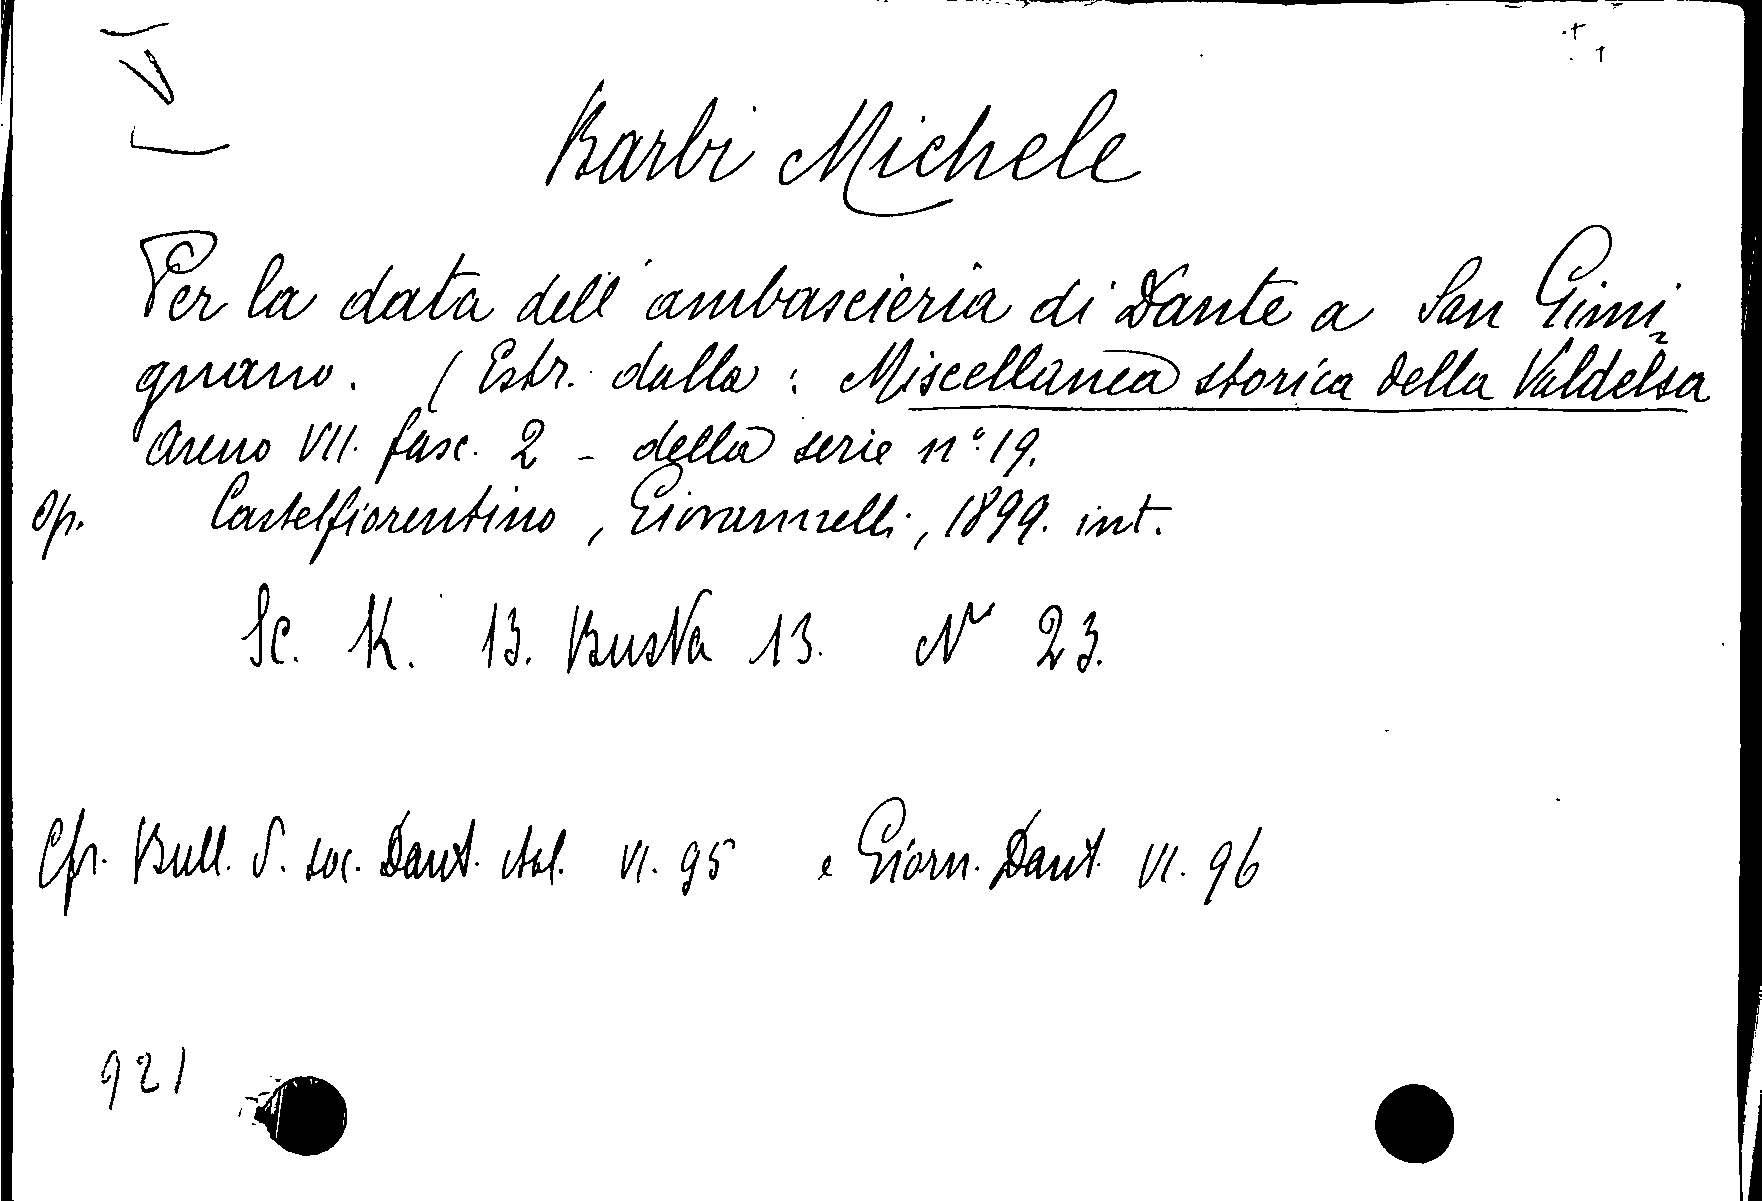 Barbi Michele
Per la data dell'ambascieria di Dante a San Gimi=
gnano. (Estr. dalla: Miscellanea storica della Valdelsa
Anno VII. fasc. 2 - della serie n.º 19.
Op. Castelfiorentino, Giovannelli, 1899. int.
Sc. K. 13. Busta 13. Nº 23.
Cfr. Bull. d. soc. Dant. ital. VI. 95 e Giorn. Dant. VI. 96
921